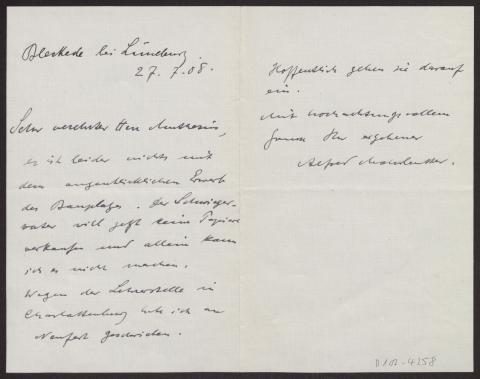 Bleckede bei Lüneburg.
27. 7. 08.
Sehr verehrter Herr Muthesius,
es ist leider nichts mit
dem augenblicklichen Erwerb
des Bauplatzes. Der Schwieger-
vater will jetzt keine Papiere
verkaufen und allein kann
ich es nicht machen.
Wegen der Lehrerstelle in
Charlottenburg habe ich an
Neufert geschrieben.
Hoffentlich gehen sie darauf
ein.
Mit hochachtungsvollem
Gruss Ihr ergebener
Alfred Mohrbutter.
D102-4258